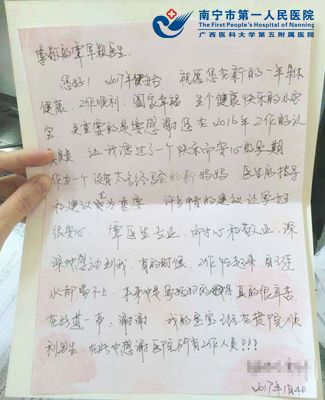 南宁市第一人民医院
The First People's Hospital of Nanning
广西医科大学第五附属医院
尊敬的覃早颖医生:
您好!2017年 祝愿您在新的一年身体
健康 工作顺利,阖家幸福 生个健康快乐的小宝
宝,更重要的是要感谢您在2016年工作的认
真 让我度过了一个快乐而安心的孕期
作为一个没有太多经验的新妈妈 医生的指导
和建议 重要 许多 的建议让
很安心。覃医生专业、耐心和敬业,深
深地感动到我,有的时候,工作忙起来,自己连
水都喝不上,本来 真的很辛苦
在此道一声,谢谢,我的宝宝 在贵院顺
利出生 在此也感谢医院所有工作人员!!!
2017年1月4日